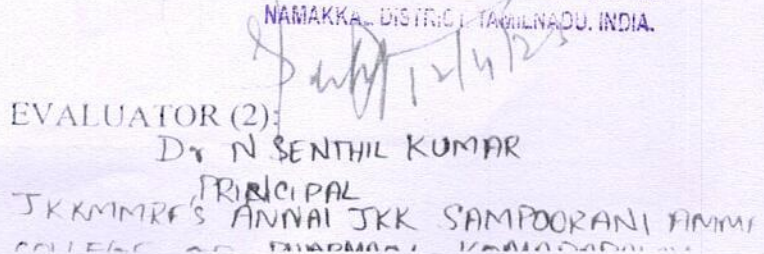 NAMAKKAL DISTRICT. TAMILNADU. INDIA.
12/4/23
EVALUATOR (2):
Dr N SENTHIL KUMAR
PRINCIPAL
JKKMMRF'S ANNAI JKK SAMPOORANI AMMA
COLLEGE OF PHARMACY